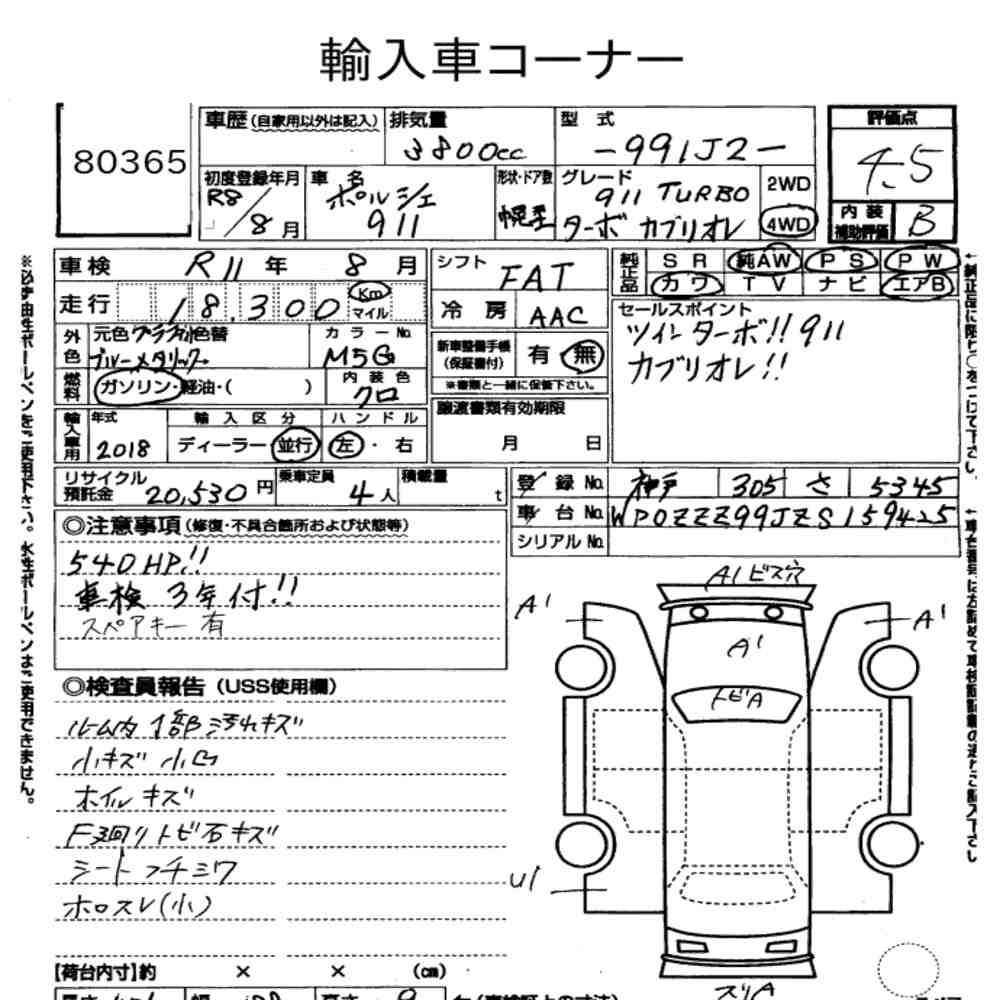 輸入車コーナー
80365
車歴 (自家用以外は記入)
排気量
3800cc
型式
-991J2-
評価点
4.5
初度登録年月
R8/8月
車名
ポルシェ
911
形状・ドア数
幌
グレード
911 TURBO
ターボ カブリオレ
2WD
4WD
内装
補助評価
B
車検 R11年 8月
シフト FAT
純正品
SR 純AW PS PW
カワ TV ナビ エアB
走行 18.300 Km マイル
冷房 AAC
セールスポイント
ツインターボ!! 911
カブリオレ!!
外色
元色
色替
ブルーメタリック
カラーNo.
M5G
新車整備手帳
(保証書付)
有 無
※書類と一緒に保管下さい。
燃料
ガソリン・軽油・( )
内装色
クロ
譲渡書類有効期限
月 日
輸入車用
年式
2018
輸入区分
ディーラー・並行
ハンドル
左・右
リサイクル
預託金
20,530円
乗車定員
4人
積載量
t
登録No. 神戸 305 さ 5345
車台No. WP0ZZZ99JZS159425
シリアルNo.
◎注意事項(修復・不具合箇所および状態等)
540HP!!
車検 3年付!!
スペアキー有
◎検査員報告 (USS使用欄)
ルーム内 1部汚れキズ
小キズ 小凹
ホイルキズ
F廻りトビ石キズ
シートフチシワ
ホロスレ(小)
A1 ビス穴
A1
A1
A1
トビA
U1
スリA
【荷台内寸】約 × × (cm)
※必ず油性ボールペンをご使用下さい。水性ボールペンはご使用できません。